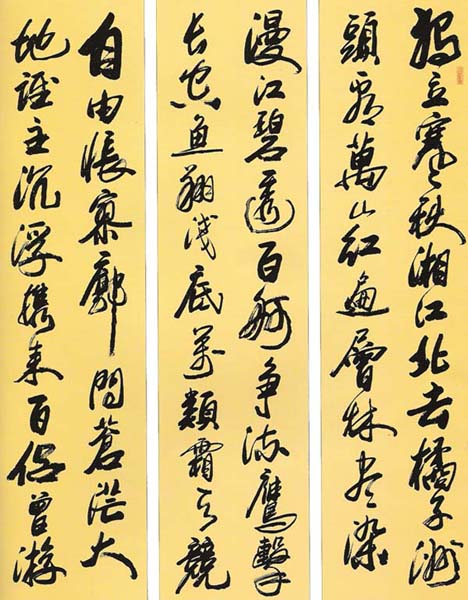 独立寒秋湘江北去橘子洲
頭看萬山红遍層林尽染
漫江碧透百舸争流鷹擊
长空鱼翔浅底萬類霜天競
自由悵寥廓問蒼茫大
地誰主沉浮携来百侣曾游